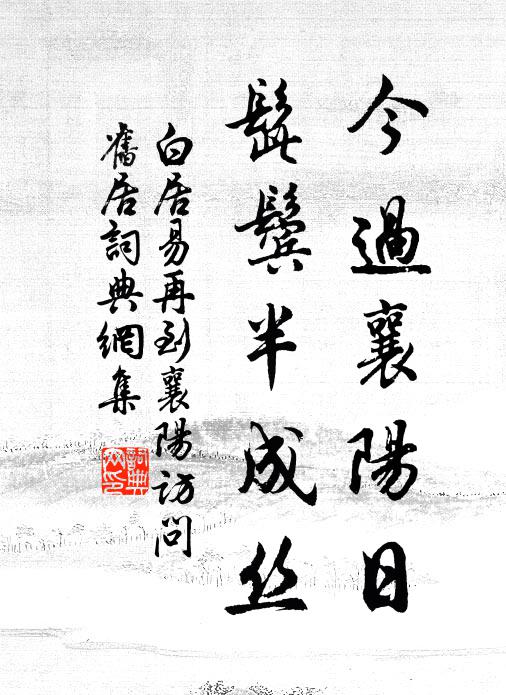 今過襄陽日
髭鬢半成丝
白居易再到襄陽訪問
舊居詞典網集
詞典
网印